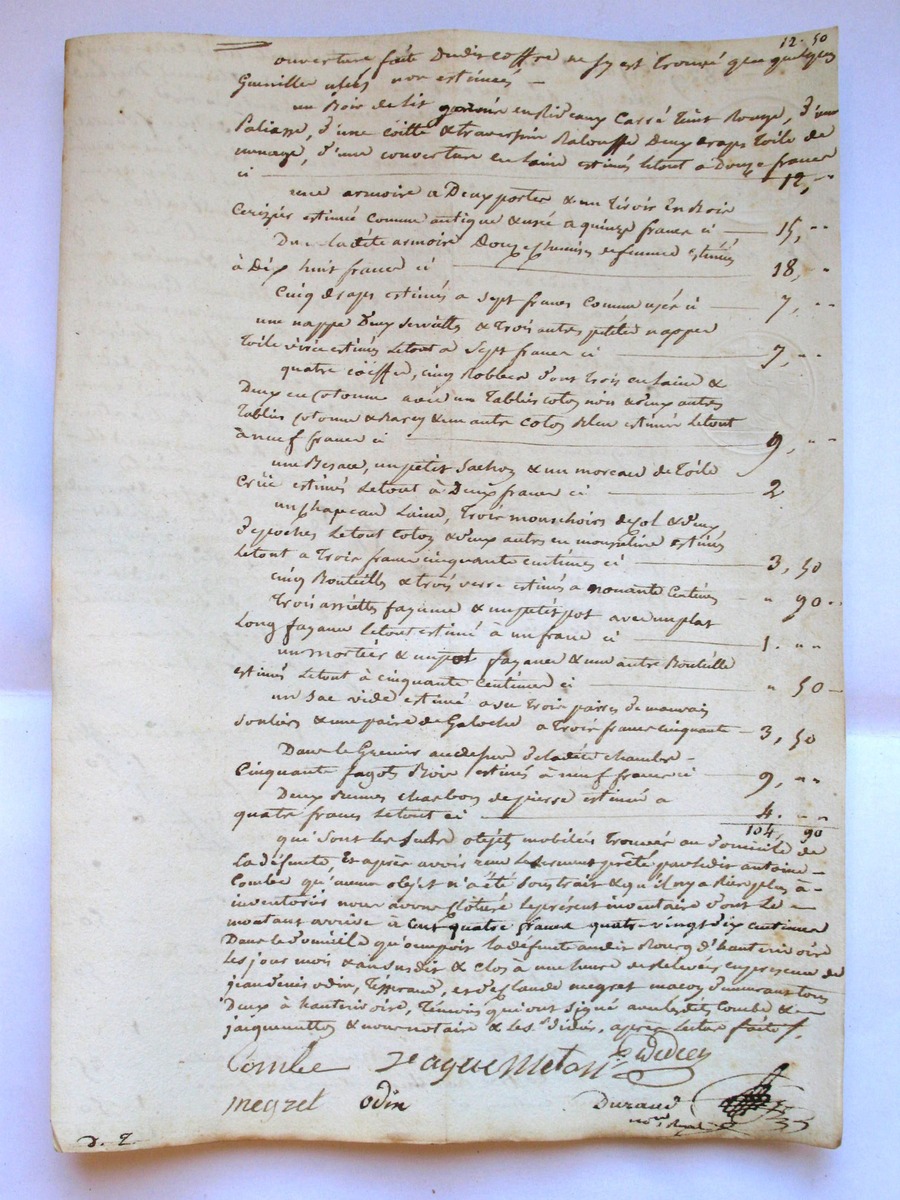 12. 50
ouverture faite dudit coffre ne sy est trouvé que quelques
Guenille usés non estimés —
un Bois de lit garnie en Rideaux Cassé teint Rouge, d'une
Paliasse, d'une Coitte & traversin Balousse Deux draps toile de
menage, d'une couverture en laine estimés le tout a Douze francs
ci — 12, "
une armoire a Deux portes & un tiroir En Bois
Cerizier estimée comme antique & usée a quinze francs ci — 15, "
Dans ladite armoire Douze chemises de femme estimées
à Dix huit francs ci — 18, "
Cinq draps estimés a sept francs comme usés ci — 7, "
une nappe Deux serviettes & trois autres petites nappes
toile usée estimés le tout a sept francs ci — 7, "
quatre coiffes, cinq Robbes dont trois en laine &
Deux en cotonne avec un tablis coton noir & deux autres
tablis cotonne & un autre coton bleu estimés le tout
à neuf francs ci — 9, "
une Besace, un petit sachoz & un morceau de toile
Crüe estimés le tout à Deux francs ci — 2
un chapeau laine, trois mouchoirs de col & deux
de poches le tout coton & deux autres en mousseline estimés
le tout a trois francs cinquante centimes ci — 3, 50
cinq Bouteilles & trois verre estimés a nonante Centimes — " 90 "
trois assiettes fayance & un petit pot avec un plat
long fayance le tout estimé à un franc ci — 1. "
un mortier & un pot fayance & une autre Bouteille
estimés le tout à cinquante centimes ci — " 50 —
un Sac vide estimé avec trois paires de mauvais
souliers & une paire de Galoche a trois francs cinquante — 3, 50
Dans le Grenier au dessus de ladite chambre —
Cinquante fagots Bois estimés à neuf francs ci — 9, "
Deux Bennes charbon de pierre estimés a
quatre francs le tout ci — 4. "
104, 90
qui sont les objets mobiliers trouvés au domicile de
la défunte, Et après avoir reçu le serment prêté par ledit antoine —
Combe qu'aucun objet n'a été soustrait & qu'il n'y a Rien plus à —
inventorié nous avons cloturé le présent inventaire dont le —
montant arrive à Cent quatre francs quatre-vingt dix centimes
Dans le domicile qu'occupoit la défunte audit Bourg d'hauterivoire
les jour mois & an susdit & clos à une heure de Relevée en présence de
jean denis odin, tisserand, et de Claude megret maçon demeurant tous
Deux à hauterivoire, témoins qui ont signé avec lesdits Combe & —
jacquemetton & nous notaire & les Srs après lecture faite /.
Combe Jacquemetton
megret odin Durand
nore Royal
D. T.